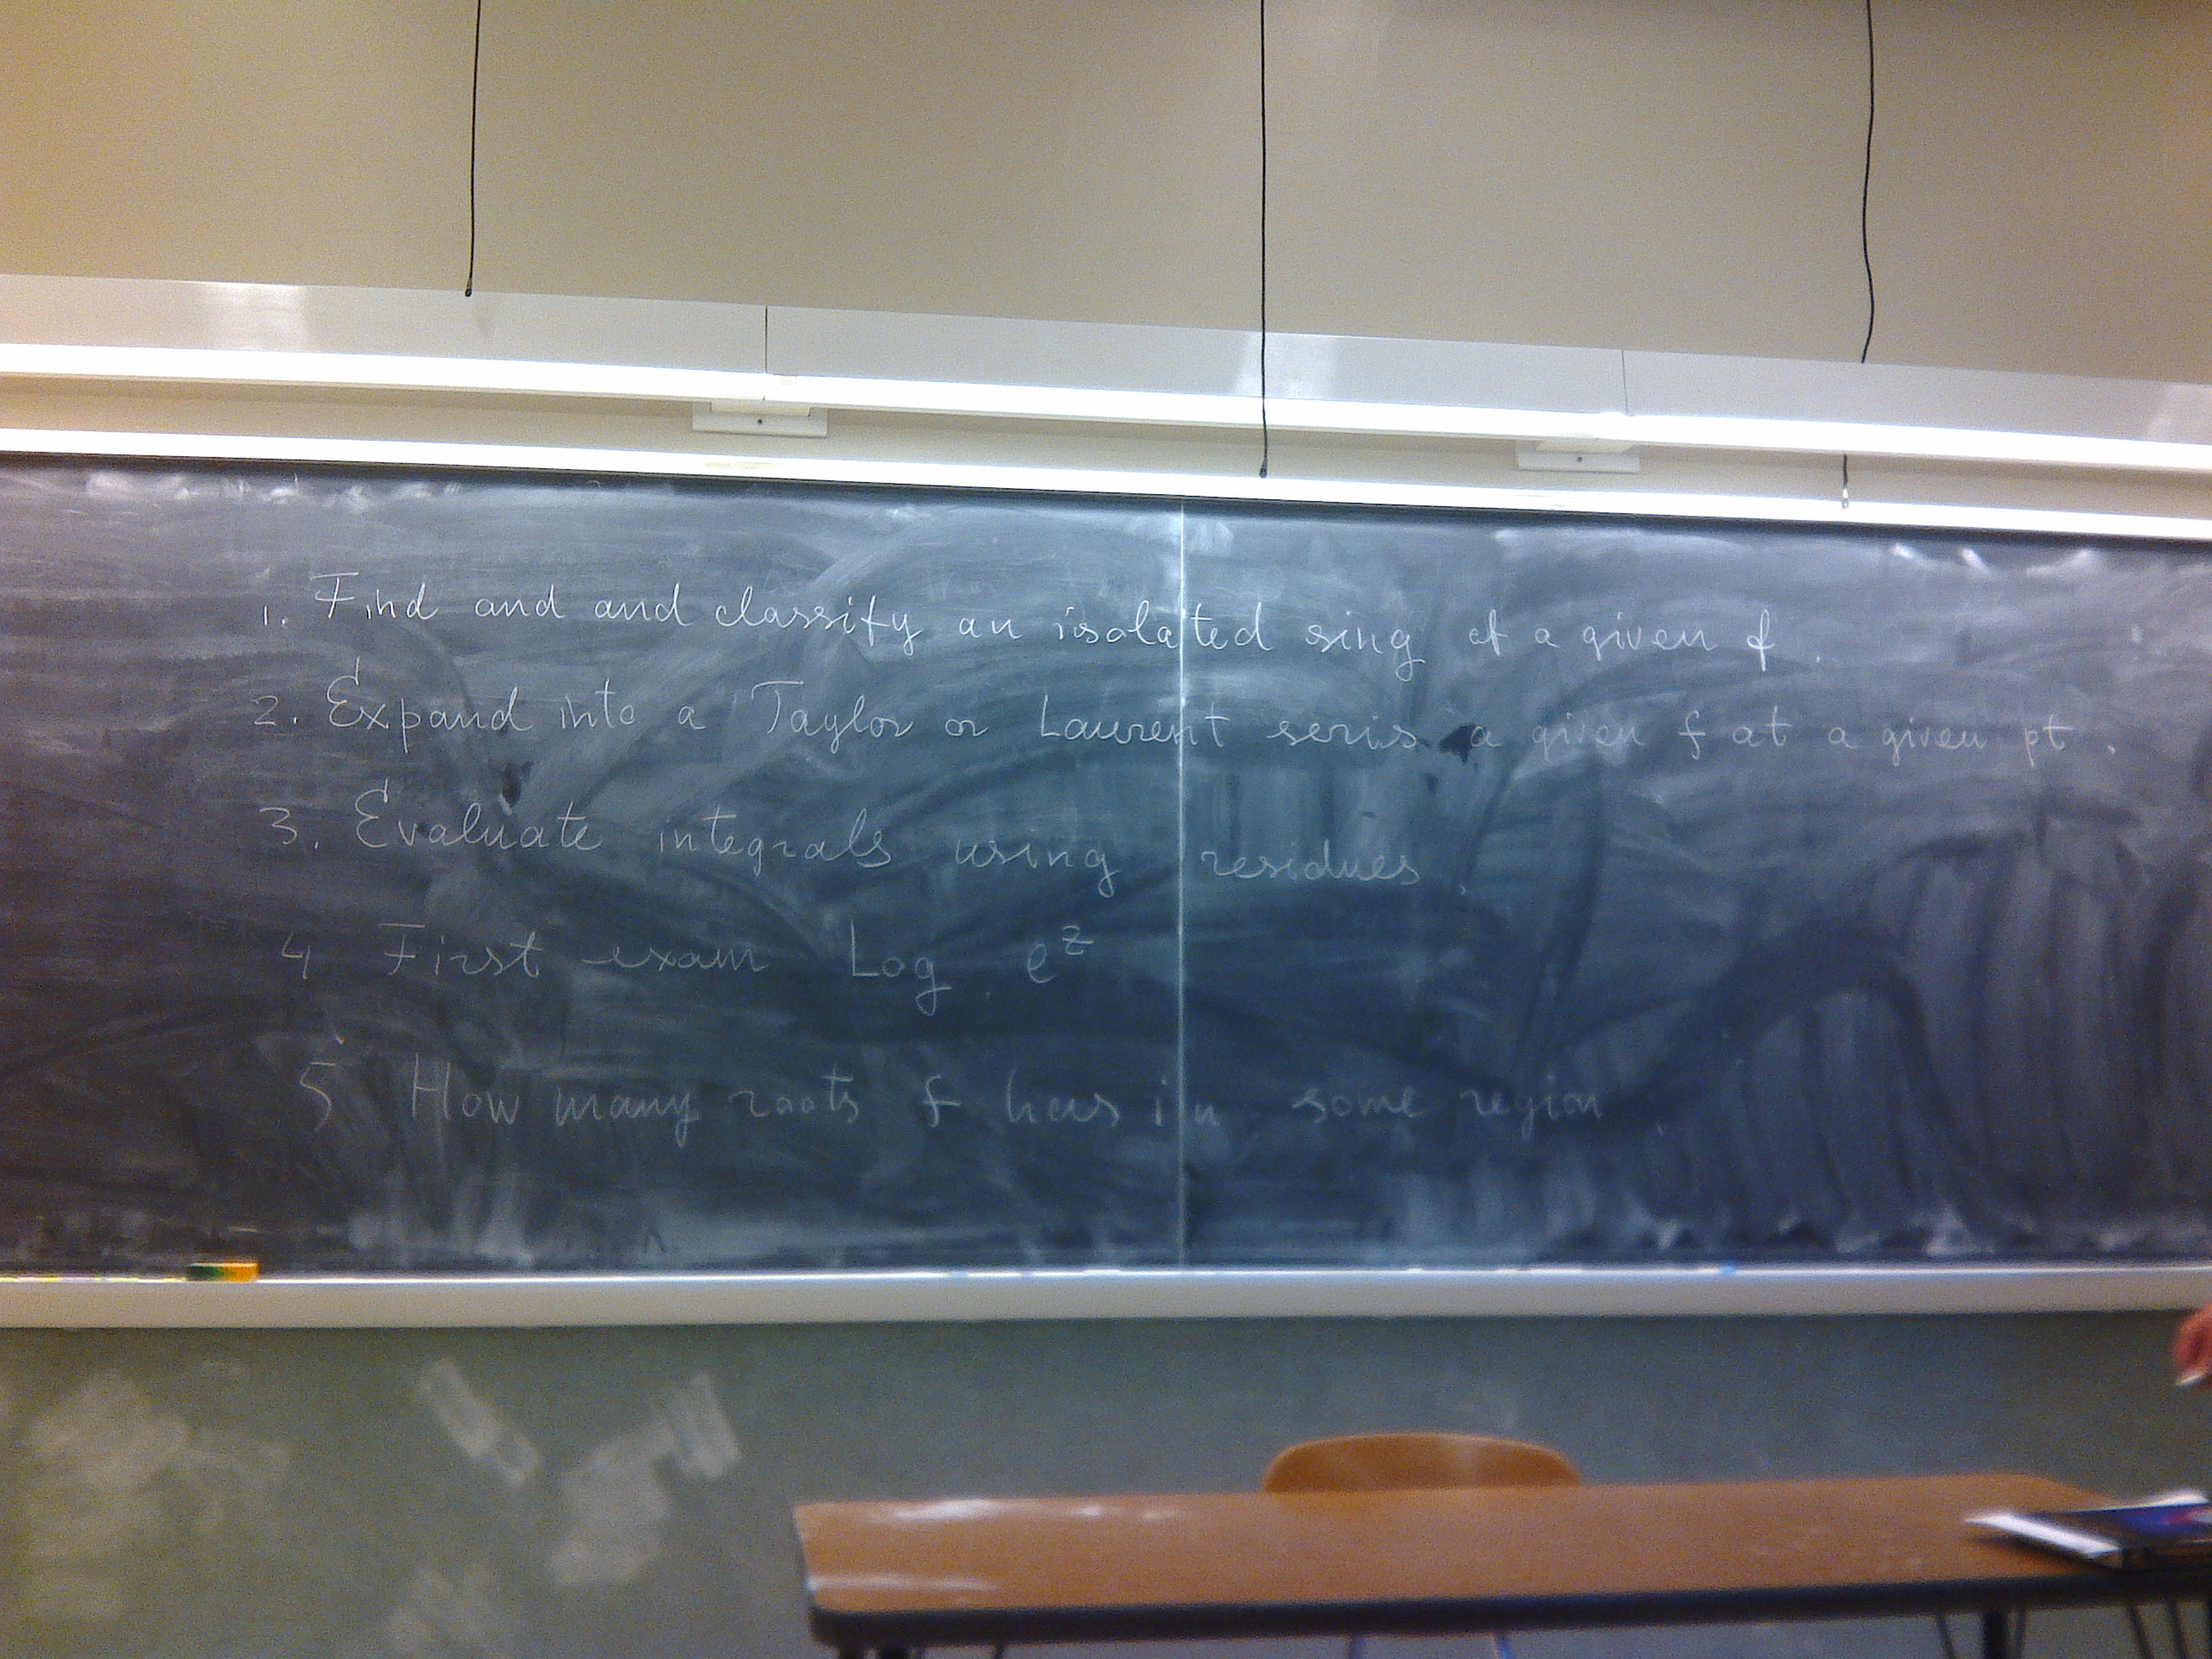 1. Find and and classify an isolated sing of a given f.
2. Expand into a Taylor or Laurent seris a given f at a given pt.
3. Evaluate integrals using residues.
4 First exam Log e^z
5 How many roots f has in some region